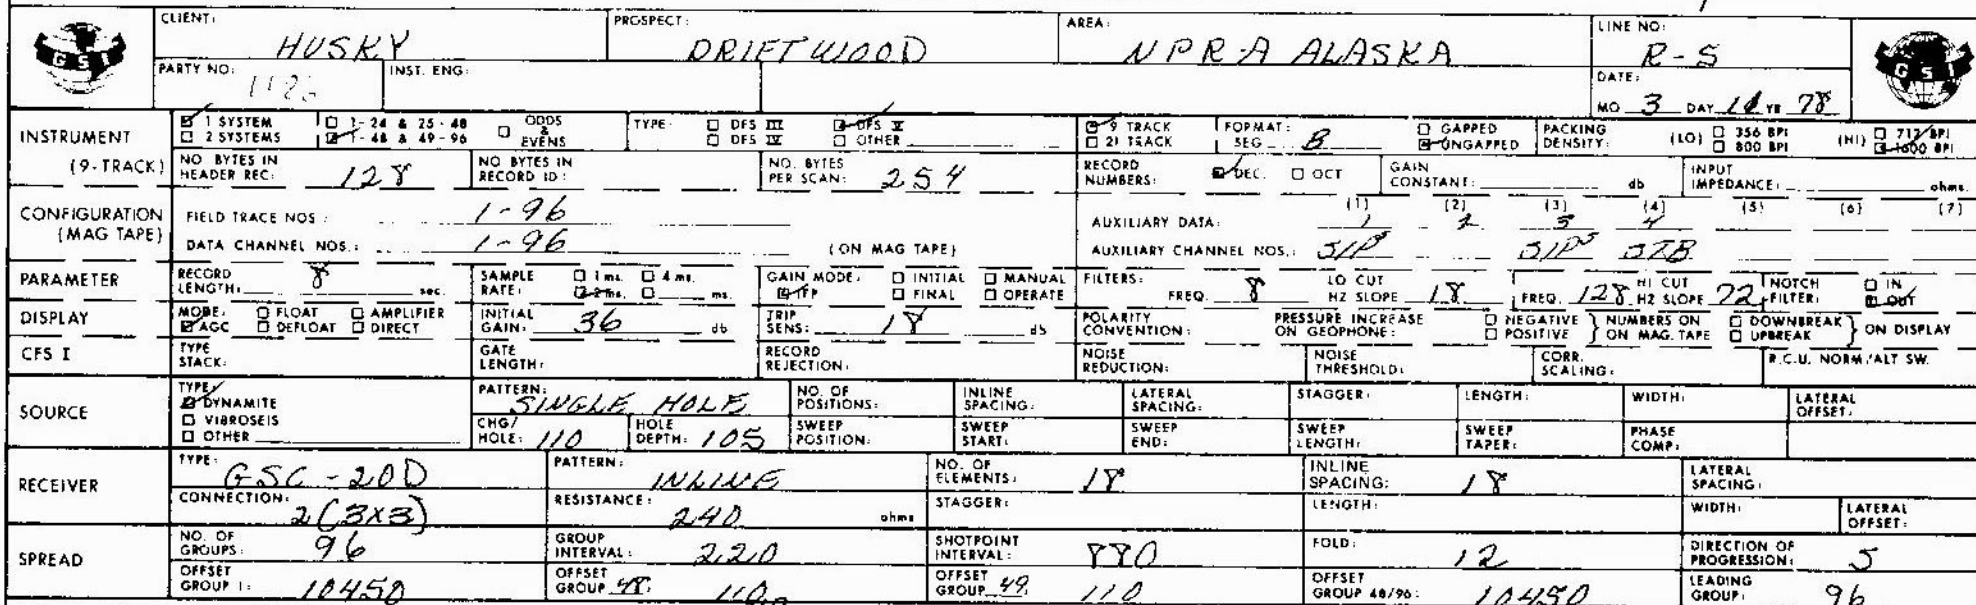 CLIENT: HUSKY PROSPECT: DRIFTWOOD AREA: NPR-A ALASKA LINE NO: R-5
GSI GSI
PARTY NO: INST. ENG: DATE: MO 3 DAY YR 78
INSTRUMENT (9-TRACK) 1 SYSTEM 1-24 & 25-48 ODDS & EVENS TYPE: DFS III DFS V 9 TRACK FORMAT: SEG B GAPPED PACKING DENSITY: (LO) 356 BPI (HI) 712 BPI
2 SYSTEMS 1-48 & 49-96 DFS IV OTHER 21 TRACK UNGAPPED 800 BPI 1600 BPI
NO BYTES IN HEADER REC: 128 NO BYTES IN RECORD ID: NO. BYTES PER SCAN: 254 RECORD NUMBERS: DEC. OCT GAIN CONSTANT: db INPUT IMPEDANCE: ohms.
CONFIGURATION (MAG TAPE) FIELD TRACE NOS: 1-96 AUXILIARY DATA: (1) 1 (2) 2 (3) 3 (4) 4 (5) (6) (7)
DATA CHANNEL NOS.: 1-96 (ON MAG TAPE) AUXILIARY CHANNEL NOS.:
PARAMETER RECORD LENGTH: 8 sec. SAMPLE RATE: 1 ms. 4 ms. 2 ms. ms. GAIN MODE: INITIAL MANUAL IFP FINAL OPERATE FILTERS: FREQ. 8 LO CUT HZ SLOPE 18 FREQ. 128 HI CUT HZ SLOPE 72 NOTCH FILTER: IN OUT
DISPLAY MODE: FLOAT AMPLIFIER AGC DEFLOAT DIRECT INITIAL GAIN: 36 db TRIP SENS: 18 db POLARITY CONVENTION: PRESSURE INCREASE ON GEOPHONE: NEGATIVE POSITIVE NUMBERS ON ON MAG. TAPE DOWNBREAK UPBREAK ON DISPLAY
CFS I TYPE STACK: GATE LENGTH: RECORD REJECTION: NOISE REDUCTION: NOISE THRESHOLD: CORR. SCALING: R.C.U. NORM/ALT SW.
SOURCE TYPE DYNAMITE VIBROSEIS OTHER PATTERN: SINGLE HOLE NO. OF POSITIONS: INLINE SPACING: LATERAL SPACING: STAGGER: LENGTH: WIDTH: LATERAL OFFSET:
CHG/HOLE: 110 HOLE DEPTH: 105 SWEEP POSITION: SWEEP START: SWEEP END: SWEEP LENGTH: SWEEP TAPER: PHASE COMP:
RECEIVER TYPE: GSC-20D PATTERN: INLINE NO. OF ELEMENTS: 18 INLINE SPACING: 18 LATERAL SPACING:
CONNECTION: 2(3X3) RESISTANCE: 240 ohms STAGGER: LENGTH: WIDTH: LATERAL OFFSET:
SPREAD NO. OF GROUPS: 96 GROUP INTERVAL: 220 SHOTPOINT INTERVAL: 880 FOLD: 12 DIRECTION OF PROGRESSION: S
OFFSET GROUP 1: 10450 OFFSET GROUP 48: 110 OFFSET GROUP 49: 110 OFFSET GROUP 48/96: 10450 LEADING GROUP: 96